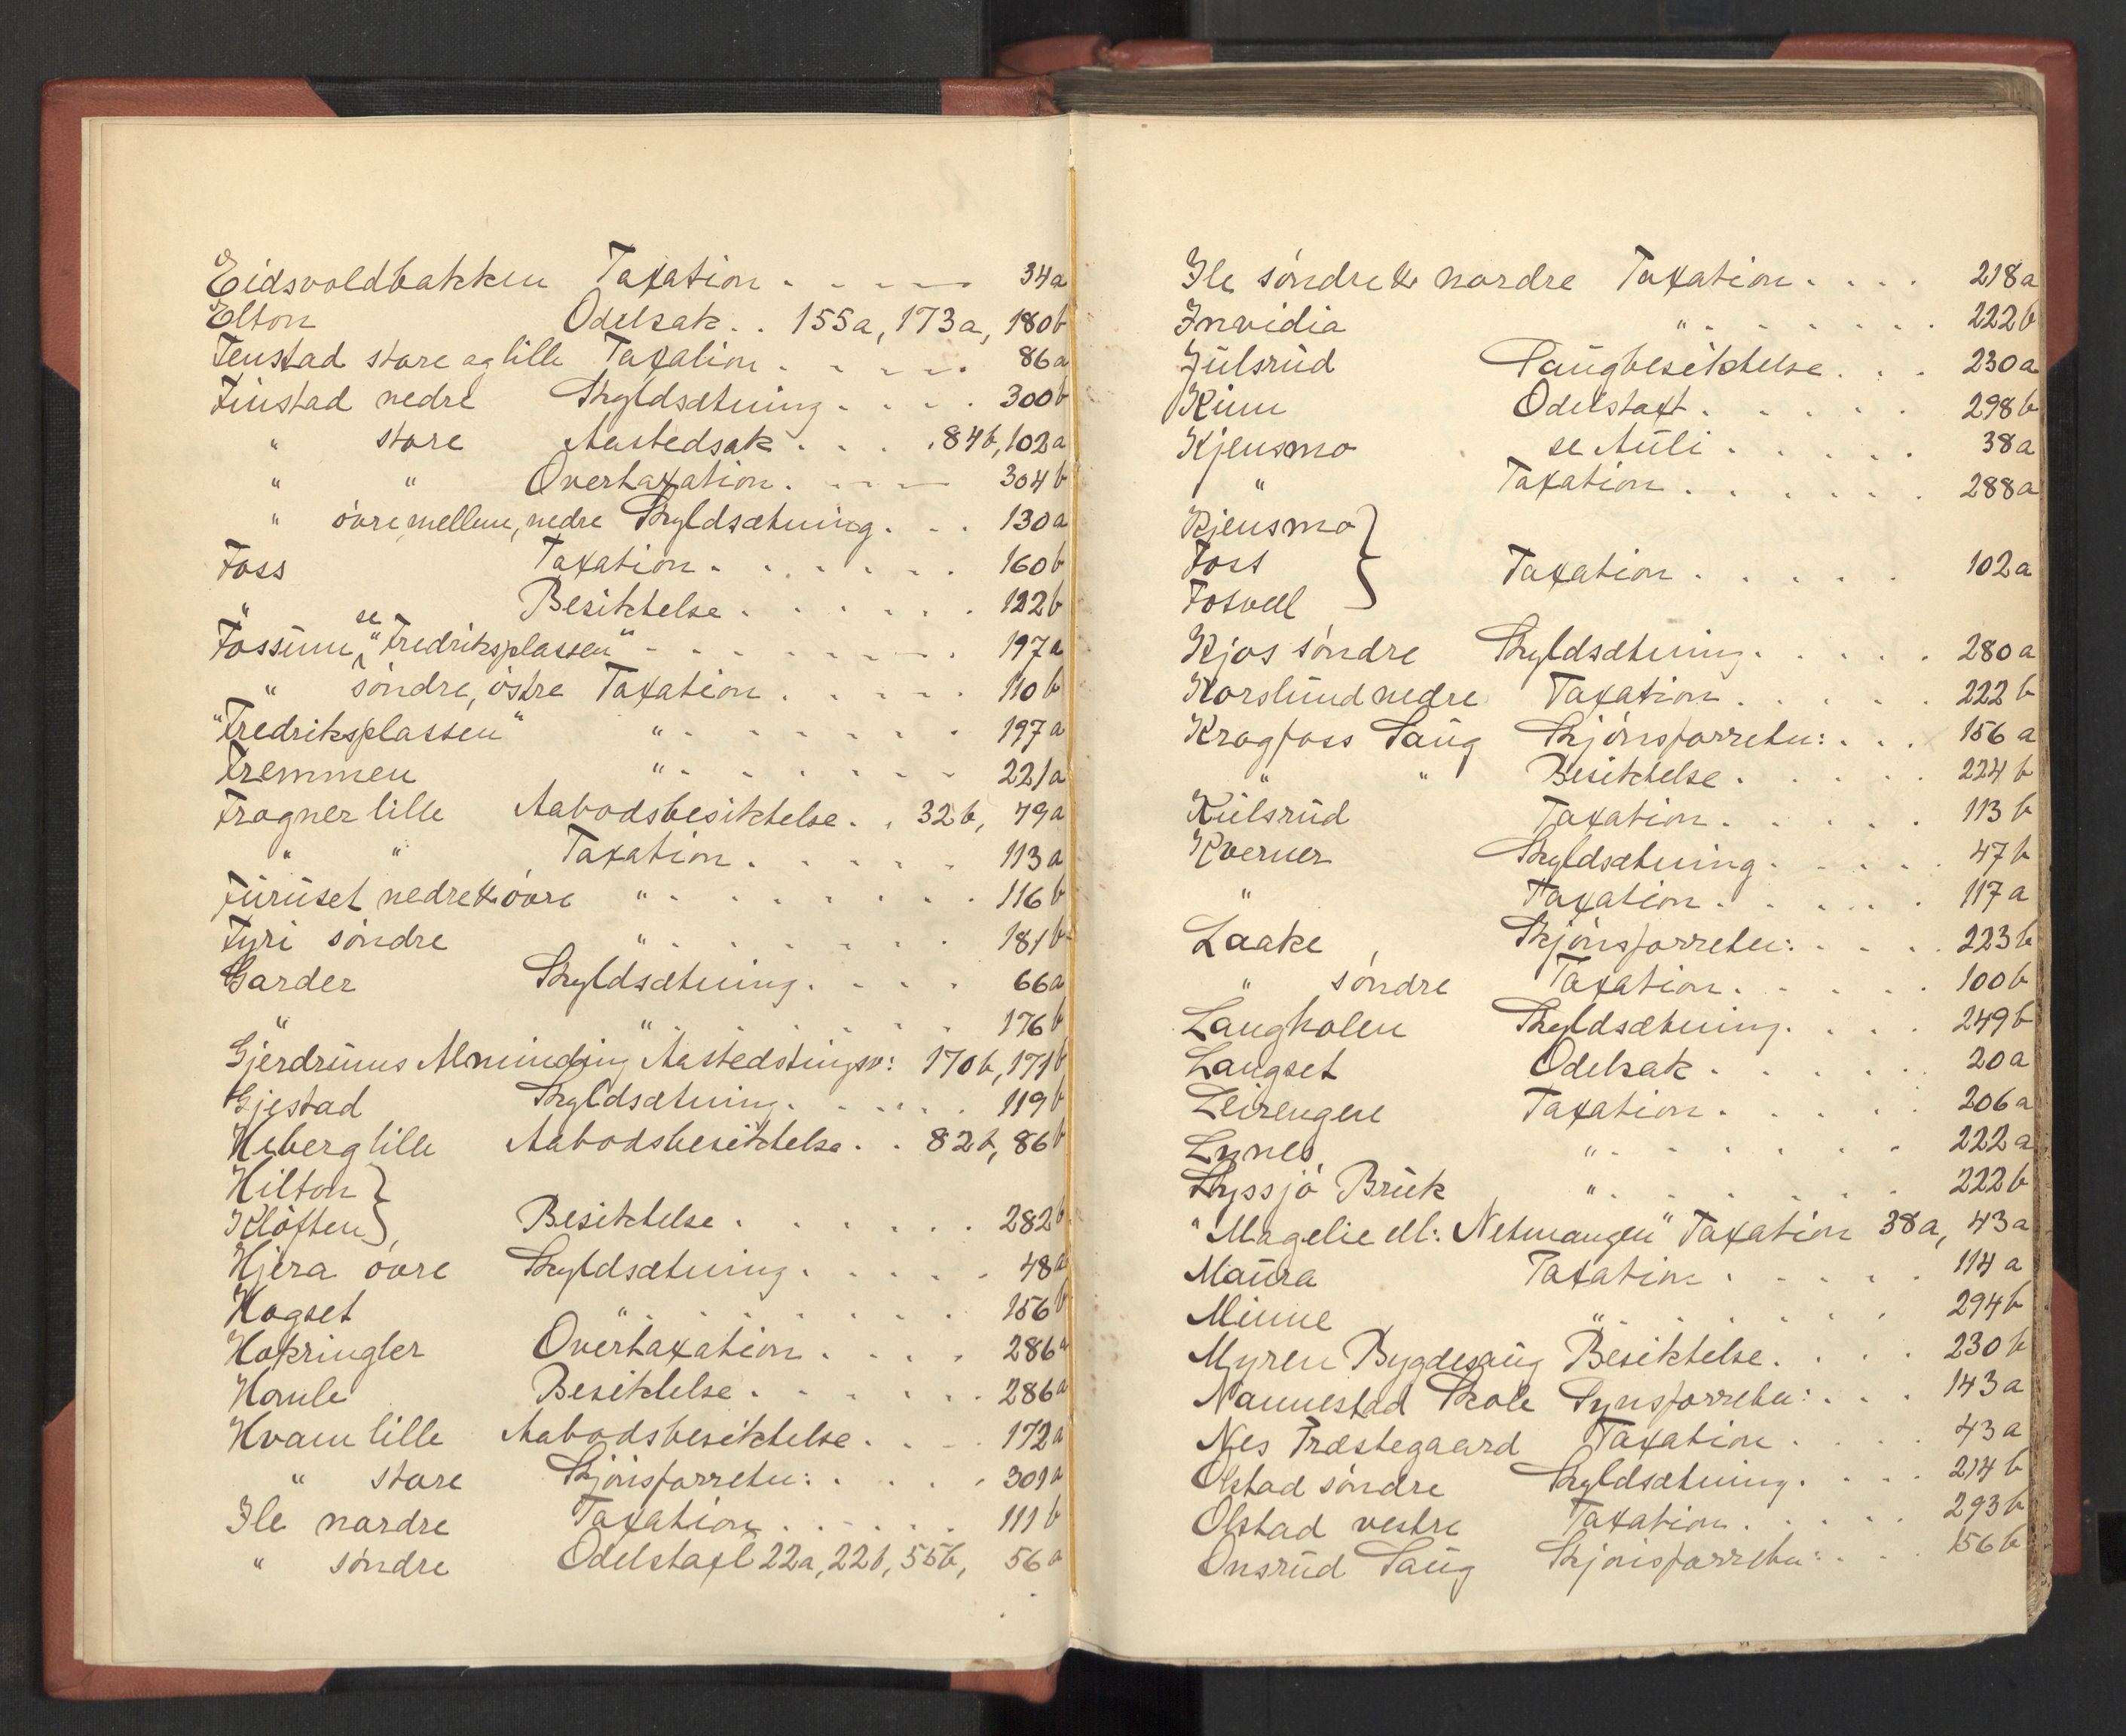 Eidsvoldbakken Taxation . . . . . 34a
Elton Odelsak . . 155a, 173a, 180b
Fenstad store og lille Taxation . . . . . 86a
Finstad nedre Skyldsætning . . . . 300b
" store Aastedsak . . . . 84b, 102a
" " Overtaxation . . . . 304b
" övre, mellem, nedre Skyldsætning . . . 130a
Foss Taxation . . . . . . 160b
" Besiktelse . . . . . . 122b
Fossum, se "Fredriksplassen" . . . . . . . . 197a
" söndre, östre Taxation . . . . . 110b
"Fredriksplassen" " . . . . . . . 197a
Fremmen " . . . . . . . 221a
Frogner lille Aabodsbesiktelse . . 32b, 79a
" " Taxation . . . . . 113a
Furuset nedre & övre " . . . . . . . . 116b
Fyri söndre " . . . . . . . 181b
Garder Skyldsætning . . . . 66a
" " . . . . . . . 176b
Gjerdrums Alminding Aastedstingsv: 170b, 171b
Gjestad Skyldsætning . . . . . 119b
Heberg lille Aabodsbesiktelse . . 82b, 86b
Hilton }
Klöften } Besiktelse . . . . . . 282b
Hjera övre Skyldsætning . . . . . 48a
Hogset " . . . . . . . 156b
Hokringler Overtaxation . . . . 286a
Homle Besiktelse . . . . . . 286a
Hvam lille Aabodsbesiktelse . . . . 172a
" store Skjönsforretn: . . . . . 301a
Ile nordre Taxation . . . . . . 111b
" söndre Odelstaxt 22a, 22b, 55b, 56a
Ile söndre & nordre Taxation . . . . 218a
Invidia " . . . . . . . 222b
Julsrud Saugbesiktelse . . . 230a
Kinn Odelstaxt . . . . . . 298b
Kjensmo se Auli . . . . . 38a
" Taxation . . . . . . 288a
Kjensmo }
Foss } Taxation . . . . . 102a
Fosvell }
Kjos söndre Skyldsætning . . . . . 280a
Korslund nedre Taxation . . . . . 222b
Krogfoss Saug Skjönsforretn: . . . 156a
" " Besiktelse . . . . . 224b
Kulsrud Taxation . . . . . 113b
Kverner Skyldsætning . . . . . 47b
" Taxation . . . . . 117a
Laake Skjönsforretn: . . . . 223b
" söndre Taxation . . . . . 100b
Langholen Skyldsætning . . . . 249b
Langset Odelsak . . . . . . 20a
Leirengen Taxation . . . . . 206a
Lynes " . . . . . . . 222a
Lyssjö Bruk " . . . . . . . 222b
"Magelie ell: Netmangen" Taxation 38a, 43a
Maura Taxation . . . . . 114a
Minne " . . . . . . . 294b
Myren Bygdesaug Besiktelse . . . . 230b
Nannestad Skole Synsforretn: . . . 143a
Nes Præstegaard Taxation . . . . 43a
Olstad söndre Skyldsætning . . . . 214b
Olstad vestre Taxation . . . . . 293b
Onsrud Saug Skjönsforretn: . . . 156b